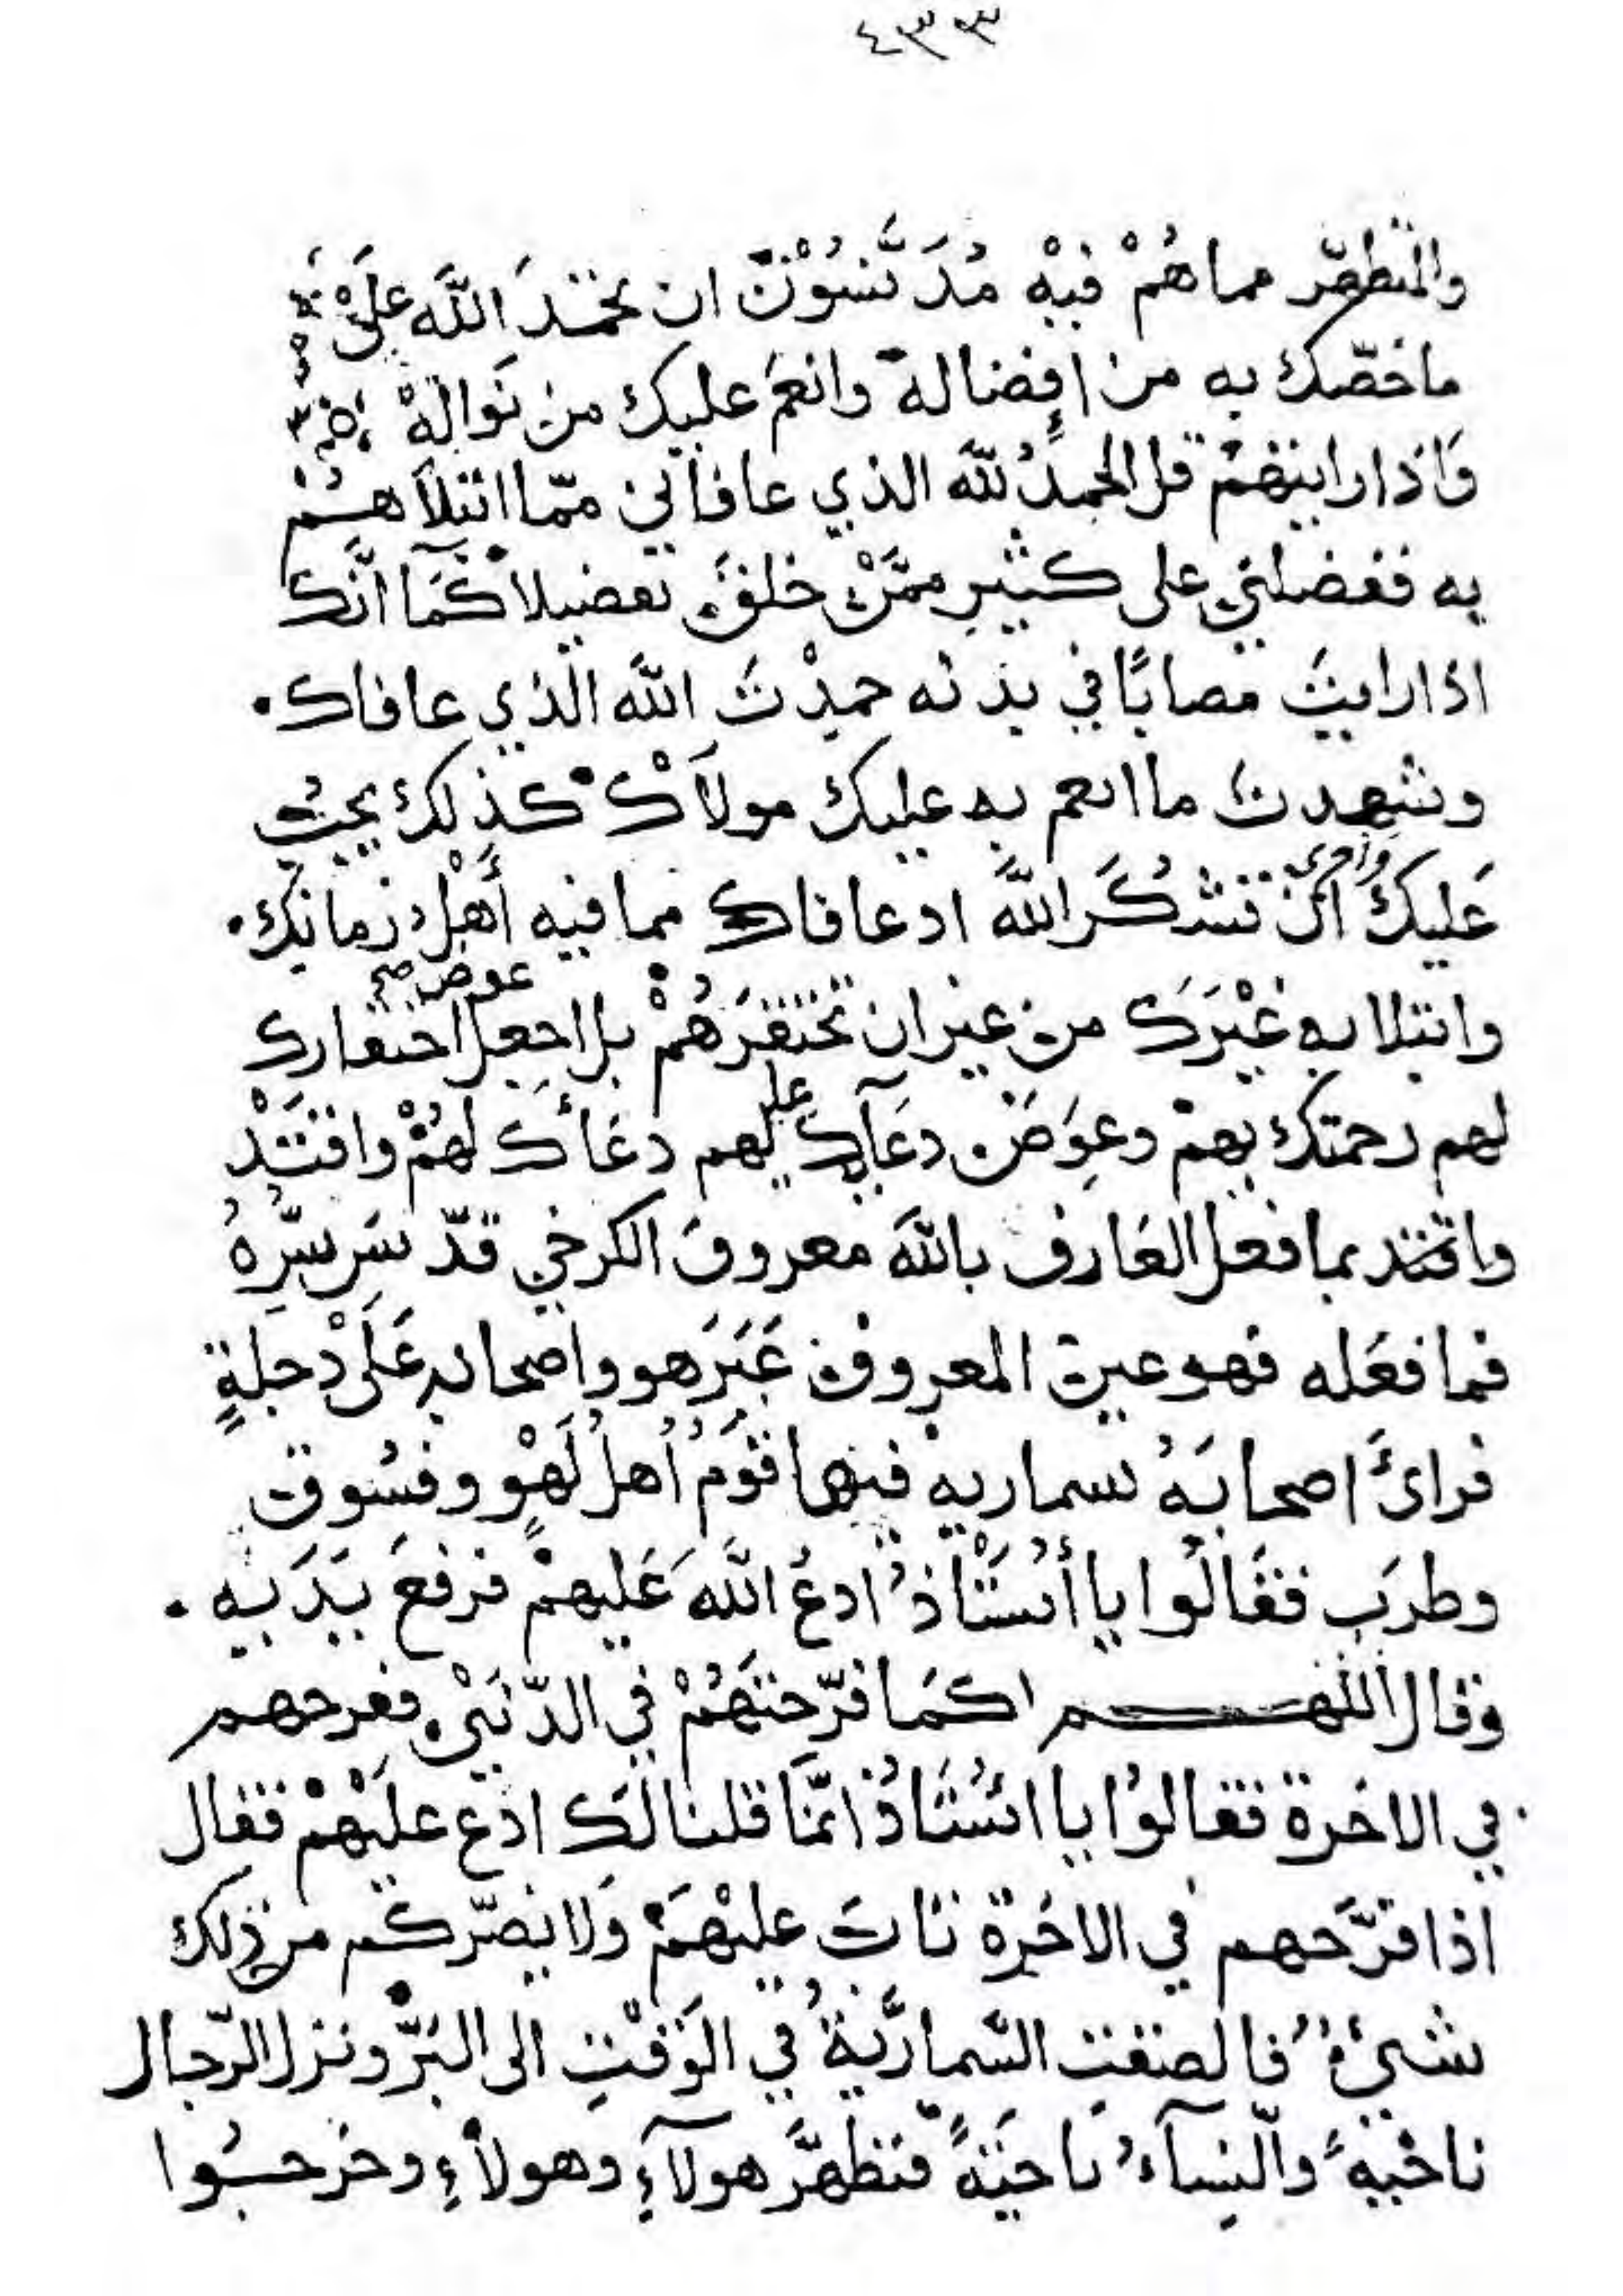 ٤٣٣
والمتطهّر مما هُمْ فيْهِ مُدَنَّسُوْنَ ان تحمَدَ اللَّه علىْ
ما خصّك به من إفضاله وانعمَ عليك من نَوالِهْ
وَاذا رايتهمْ قل الحمدُ للَّه الذي عافاني ممّا ابتلاَ هُمْ
به ففضلني على كثيرٍ ممَّنْ خلقَ تفضيلا كَمَا انَّك
اذا رايتَ مصابًا في بدنه حمدْتَ اللَّه الَّذي عافاك.
وشهدت ما انعم به عليك مولاَكْ كذلك يجبُ
عَليكَ وَاحرى انْ تشكُرَ اللَّه اد عافاك مما فيه أهْلُ زمانِكَ.
وابتلا به غيْرَكَ من غير ان تحتقرَهُمْ بل اجعل عوض صح احتقارك
لهم رحمتك بهمْ وعِوَضَ دعَآيك على لهم دعَائَك لهُمْ واقتَدْ
واقتد بما فعل العَارف باللَّه معروف الكرخي قدّسَ سرّهُ
فما فعَله فهو عين المعروف عَبَرَ هو واصحابه عَلَىْ دجلةٍ
فرائَ اصحابَهُ سماريه فيها قوَمُ أهلُ لَهْوٍ وفسُوق
وطرَبٍ فقَالُوا يا أسْتَاذُ ادعُ اللَّه عَليهمْ فرفعَ يَدَيه.
وقال اللهم كمَا فرّحتَهُمْ في الدّنيىْ ففرحهم
في الاخرة فقالوُا يا اسْتَاذُ انّمَا قلنا لَك ادع علَيْهمْ فقال
اذا فرَّحهم في الاخَرة تابَ عليْهَمْ وَلا يضرّكم من ذلك
شيءٌ فالصقت السّمارَّيةُ في الوَقْتِ الى البَرّ ونزل الرّجال
ناحْيةً والنّسآءُ ناحيَةً فتطهَّر هولآءِ وهولاءِ وخرجُوا